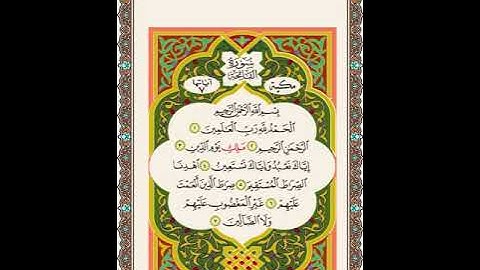 سُورَةُ
مكية الفَاتِحَة آياتها ٧
بِسْمِ اللَّهِ الرَّحْمَٰنِ الرَّحِيمِ
الْحَمْدُ لِلَّهِ رَبِّ الْعَالَمِينَ ١
الرَّحْمَٰنِ الرَّحِيمِ ٢ مَلِكِ يَوْمِ الدِّينِ ٣
إِيَّاكَ نَعْبُدُ وَإِيَّاكَ نَسْتَعِينُ ٤ اهْدِنَا
الصِّرَاطَ الْمُسْتَقِيمَ ٥ صِرَاطَ الَّذِينَ أَنْعَمْتَ
عَلَيْهِمْ ٦ غَيْرِ الْمَغْضُوبِ عَلَيْهِمْ
وَلَا الضَّالِّينَ ٧